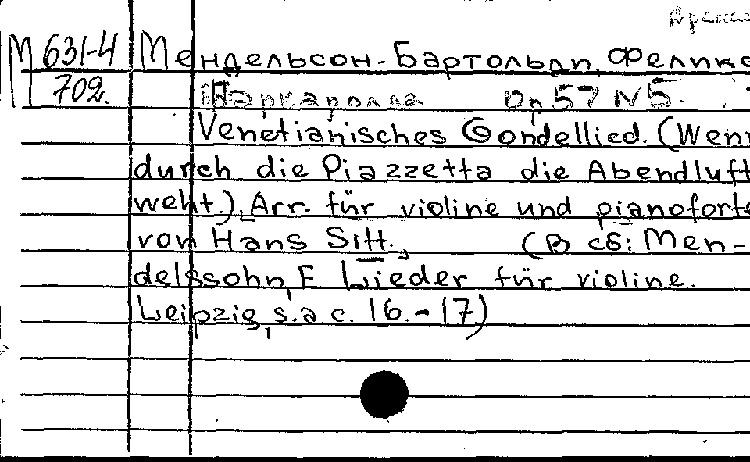 М 631-4 Мендельсон-Бартольди, Феликс
702. Баркарола Op. 57 N 5.
Venetianisches Gondellied. (Wenn
durch die Piazzetta die Abendluft
weht.) Arr. für violine und pianoforte
von Hans Sitt. (В сб: Men-
delssohn, F. Lieder für violine.
Leipzig, s.a. c. 16.-17)